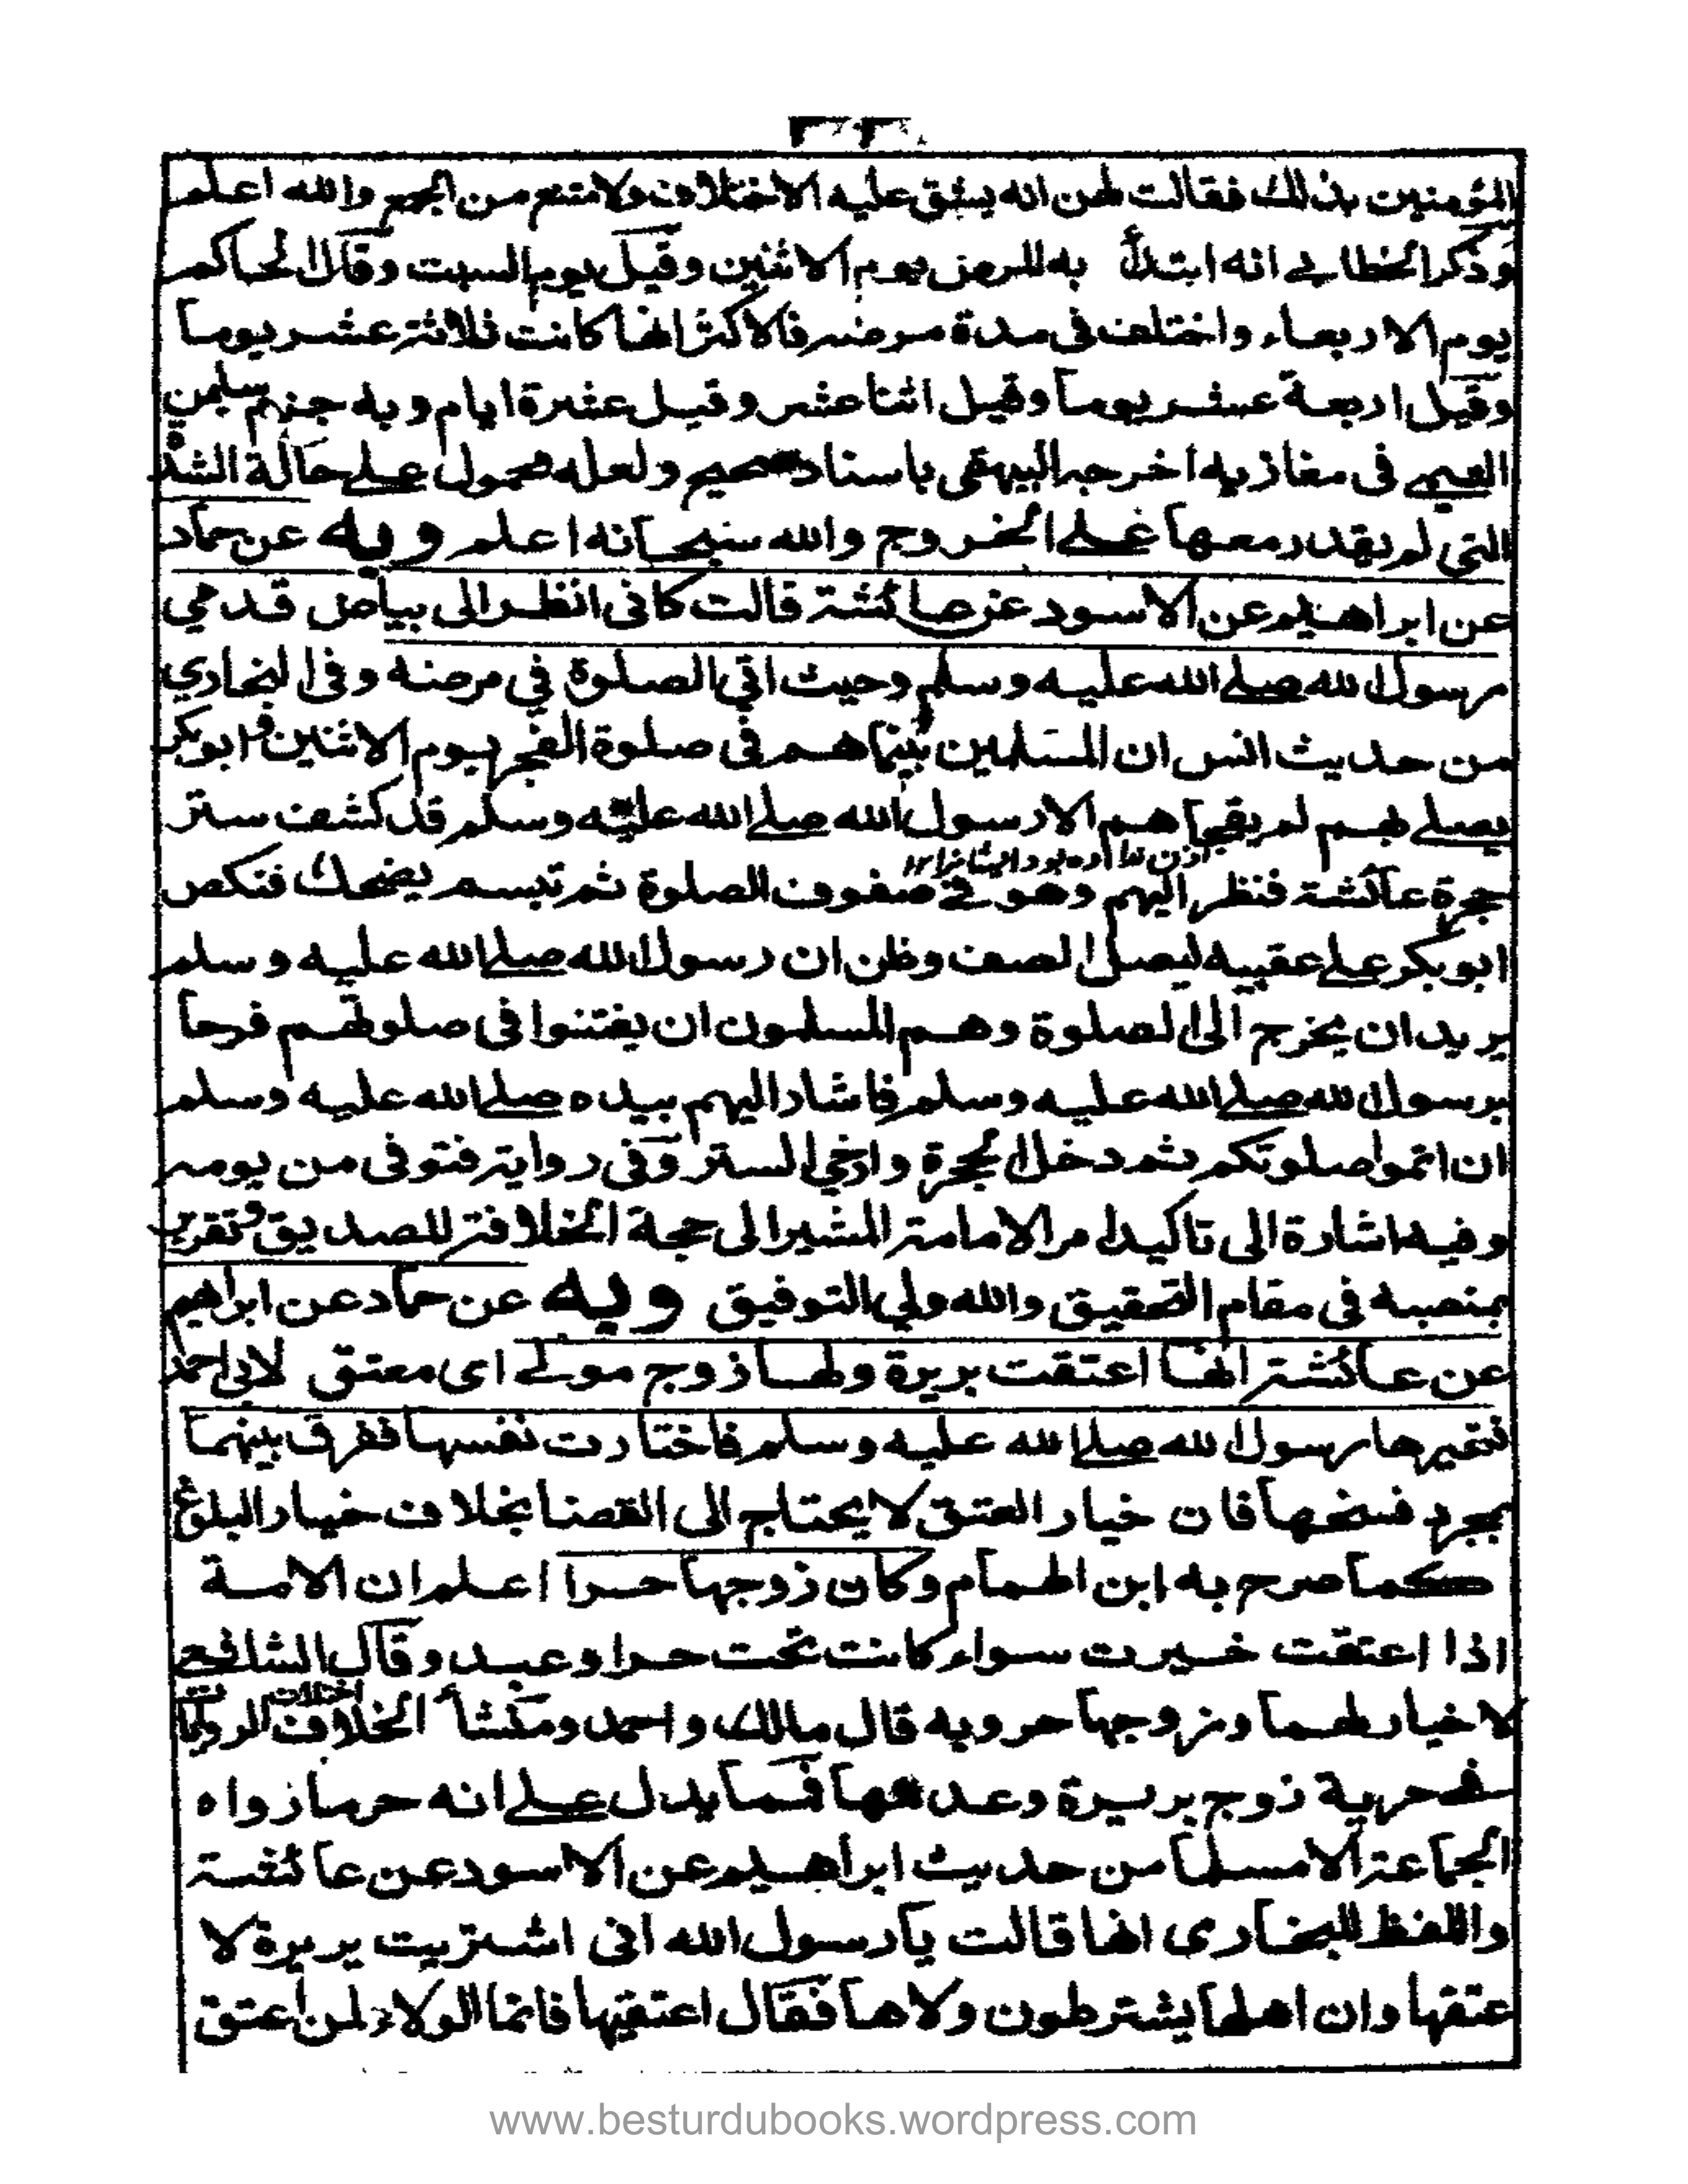 المؤمنين بذلك فقالت لهن انه يشق عليه الاختلاف ولا متنع من الجمع والله اعلم
وذكر الخطابي انه ابتدأ به المرض يوم الاثنين وقيل يوم السبت وقال الحاكم
يوم الاربعاء واختلف فى مدة مرضه فالاكثر انها كانت ثلاثة عشر يوما
وقيل اربعة عشر يوما وقيل اثنا عشر وقيل عشرة ايام وبه جزم سليمن
التيمي فى مغازيه اخرجه البيهقى باسناد صحيح ولعله محمول على حالة الشدة
التى لم يقدر معها على الخروج والله سبحانه اعلم وبه عن حماد
عن ابراهيم عن الاسود عن عائشة قالت كانى انظر الى بياض قدمي
رسول الله صلے الله عليه وسلم وحيث اتي الصلوة في مرضه وفى البخاري
من حديث انس ان المسلمين بينما هم فى صلوة الفجر يوم الاثنين وابوبكر
يصلے بهم لم يفجأ هم الا رسول الله صلے الله عليه وسلم قد كشف ستر
حجرة عائشة فنظر اليهم وهو فے صفوف الصلوة ثم تبسم يضحك فنكص
ابوبكر علے عقبيه ليصل الصف وظن ان رسول الله صلے الله عليه وسلم
يريد ان يخرج الى الصلوة وهم المسلمون ان يفتنوا فى صلوتهم فرحا
برسول الله صلے الله عليه وسلم فاشار اليهم بيده صلے الله عليه وسلم
ان اتموا صلوتكم ثم دخل الحجرة وارخي الستر وفى رواية فتوفى من يومه
وفيه اشارة الى تاكيد امر الامامة المشير الى حجة الخلافة للصديق وتقريب
بمنصبه فى مقام التحقيق والله ولي التوفيق وبه عن حماد عن ابراهيم
عن عائشة انها اعتقت بريرة ولها زوج مولے اى معتق لابى احمد
فخيرها رسول الله صلے الله عليه وسلم فاختارت نفسها ففرق بينهما
بمجرد فسخها فان خيار العتق لا يحتاج الى القضا بخلاف خيار البلوغ
كما صرح به ابن الهمام وكان زوجها حرا اعلم ان الامة
اذا اعتقت خيرت سواء كانت تحت حر او عبد وقال الشافعي
لا خيار لهما وزوجها حر وبه قال مالك واحمد ومنشأ الخلاف اختلاف الروايتين
فے حرية زوج بريرة وعدمها فما يدل علے انه حر ما رواه
الجماعة الا مسلما من حديث ابراهيم عن الاسود عن عائشة
واللفظ للبخارى انها قالت يا رسول الله انى اشتريت بريرة لا
عتقها وان اهلها يشترطون ولاها فقال اعتقيها فانما الولاء لمن اعتق
www.besturdubooks.wordpress.com